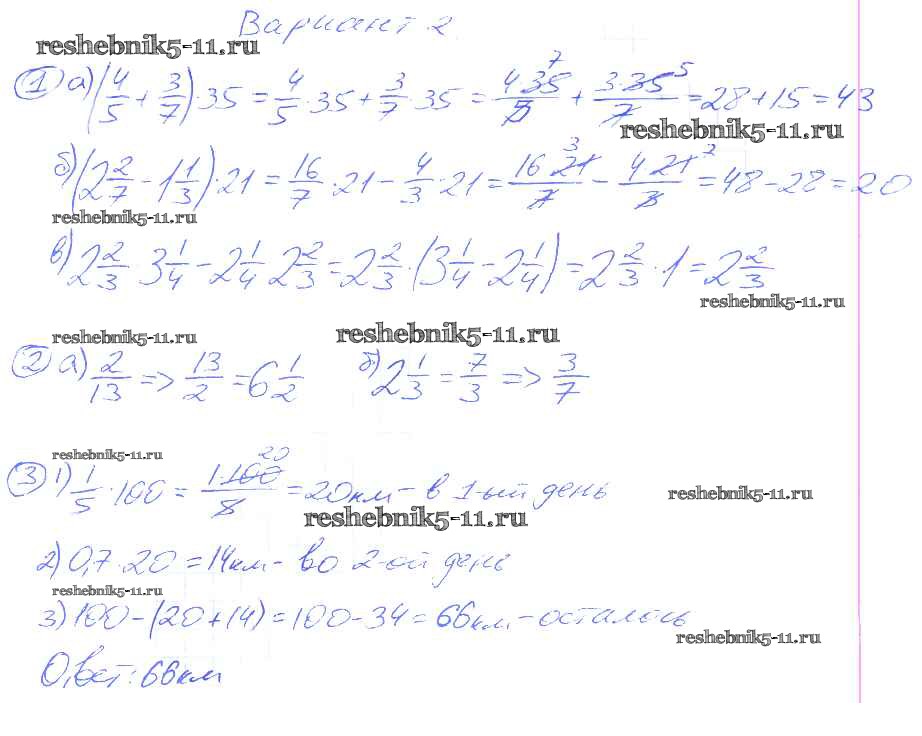 Вариант 2
reshebnik5-11.ru
① а) (4/5 + 3/7) · 35 = 4/5 · 35 + 3/7 · 35 = 4·35/5 + 3·35/7 = 28 + 15 = 43
7 5
reshebnik5-11.ru
б) (2 2/7 - 1 1/3) · 21 = 16/7 · 21 - 4/3 · 21 = 16·21/7 - 4·21/3 = 48 - 28 = 20
3 7
reshebnik5-11.ru
в) 2 2/3 · 3 1/4 - 2 1/4 · 2 2/3 = 2 2/3 · (3 1/4 - 2 1/4) = 2 2/3 · 1 = 2 2/3
reshebnik5-11.ru
reshebnik5-11.ru reshebnik5-11.ru
② а) 2/13 => 13/2 = 6 1/2 б) 2 1/3 = 7/3 => 3/7
reshebnik5-11.ru
③ 1) 1/5 · 100 = 1·100/5 = 20км - в 1-ый день
20
reshebnik5-11.ru
reshebnik5-11.ru
2) 0,7 · 20 = 14км - во 2-ой день
reshebnik5-11.ru
3) 100 - (20 + 14) = 100 - 34 = 66км - осталось
reshebnik5-11.ru
Ответ: 66км